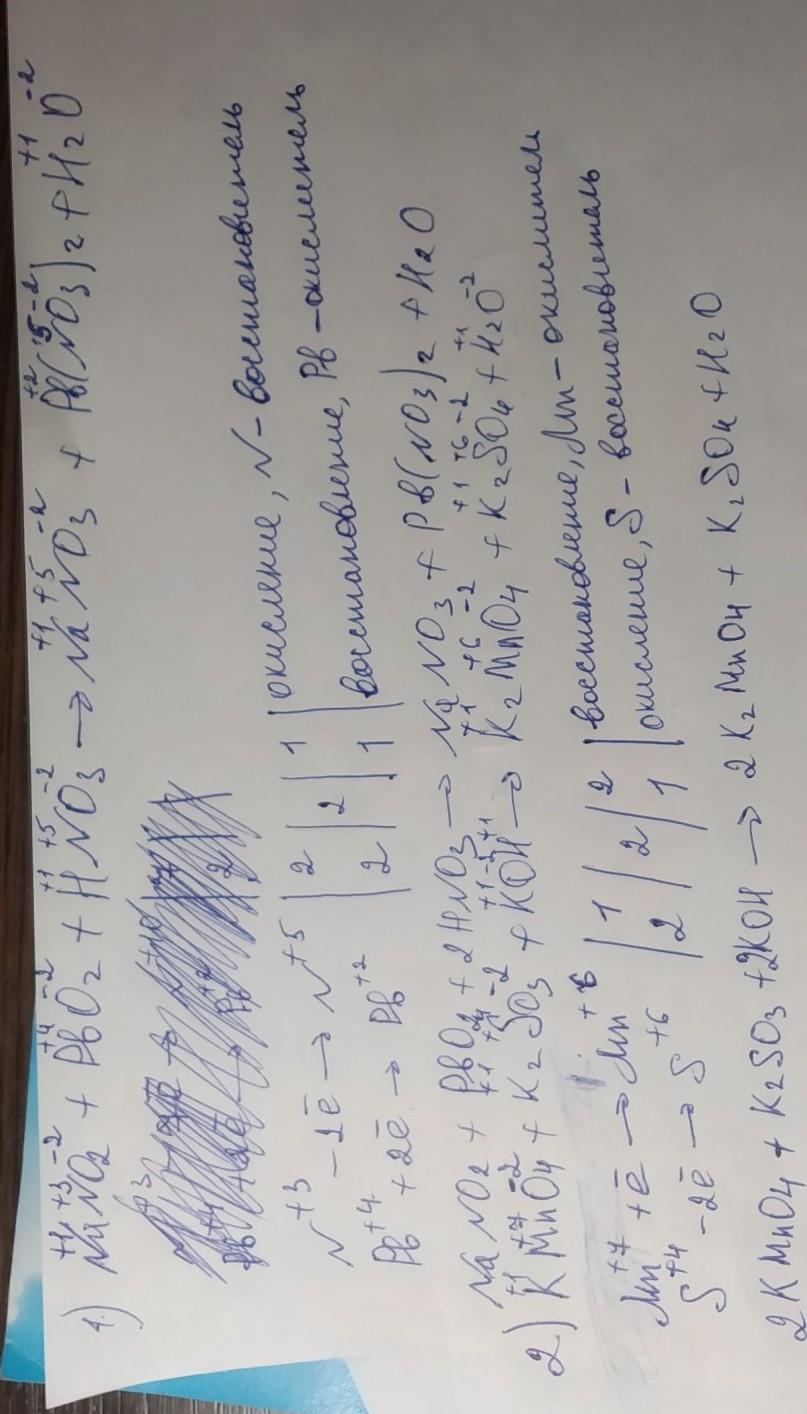 1.) Na⁺¹N⁺³O₂⁻² + Pb⁺⁴O₂⁻² + H⁺¹N⁺⁵O₃⁻² → Na⁺¹N⁺⁵O₃⁻² + Pb⁺²(N⁺⁵O₃⁻²)₂ + H₂⁺¹O⁻²
N⁺³ - 2ē → N⁺⁵ | 2 | 2 | 1 | окисление, N - восстановитель
Pb⁺⁴ + 2ē → Pb⁺² | 2 | 1 | восстановление, Pb - окислитель
NaNO₂ + PbO₂ + 2HNO₃ → NaNO₃ + Pb(NO₃)₂ + H₂O
2) K⁺¹Mn⁺⁷O₄⁻² + K₂⁺¹S⁺⁴O₃⁻² + K⁺¹O⁻²H⁺¹ → K₂⁺¹Mn⁺⁶O₄⁻² + K₂⁺¹S⁺⁶O₄⁻² + H₂⁺¹O⁻²
Mn⁺⁷ + ē → Mn⁺⁶ | 1 | 2 | 2 | восстановление, Mn - окислитель
S⁺⁴ - 2ē → S⁺⁶ | 2 | 1 | окисление, S - восстановитель
2KMnO₄ + K₂SO₃ + 2KOH → 2K₂MnO₄ + K₂SO₄ + H₂O